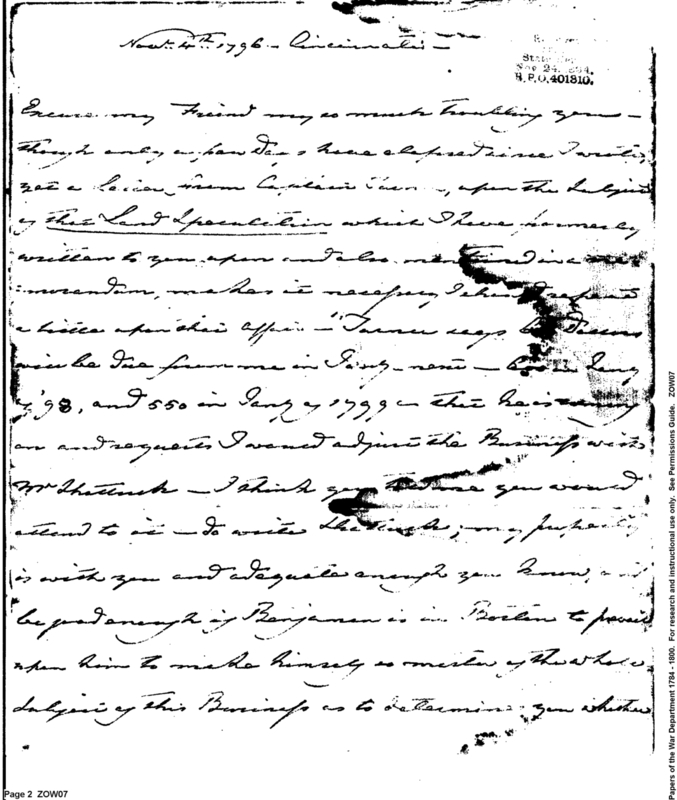 Novr. 4th 1796 - Cincinnati -
Nov 24, 1894.
R.P.O. 401810.
Excuse my Friend my so much troubling you -
though only a few Days have elapsed since I wrote,
yet a Letter from Captain upon the Subject
of this Land Speculation which I have formerly
written to you upon and also mentioned in a me-
:morandum, makes it necessary I should
a little upon this Affair - Turner says Dollars
will be due from me in Jany. next - in Jany
of '98, and 550 in Jany of 1799 - that he is
on and requests I would adjust the Business with
Mr Shattuck - I think you you would
attend to it - do write Shattuck, my property
is with you and adequate enough you know, and
be good enough if Benjamin is in Boston to prevail
upon him to make himself so master of the whole
Subject of this Business as to determine you whether
Page 2 ZOW07
Papers of the War Department 1784 - 1800. For research and instructional use only. See Permissions Guide. ZOW07